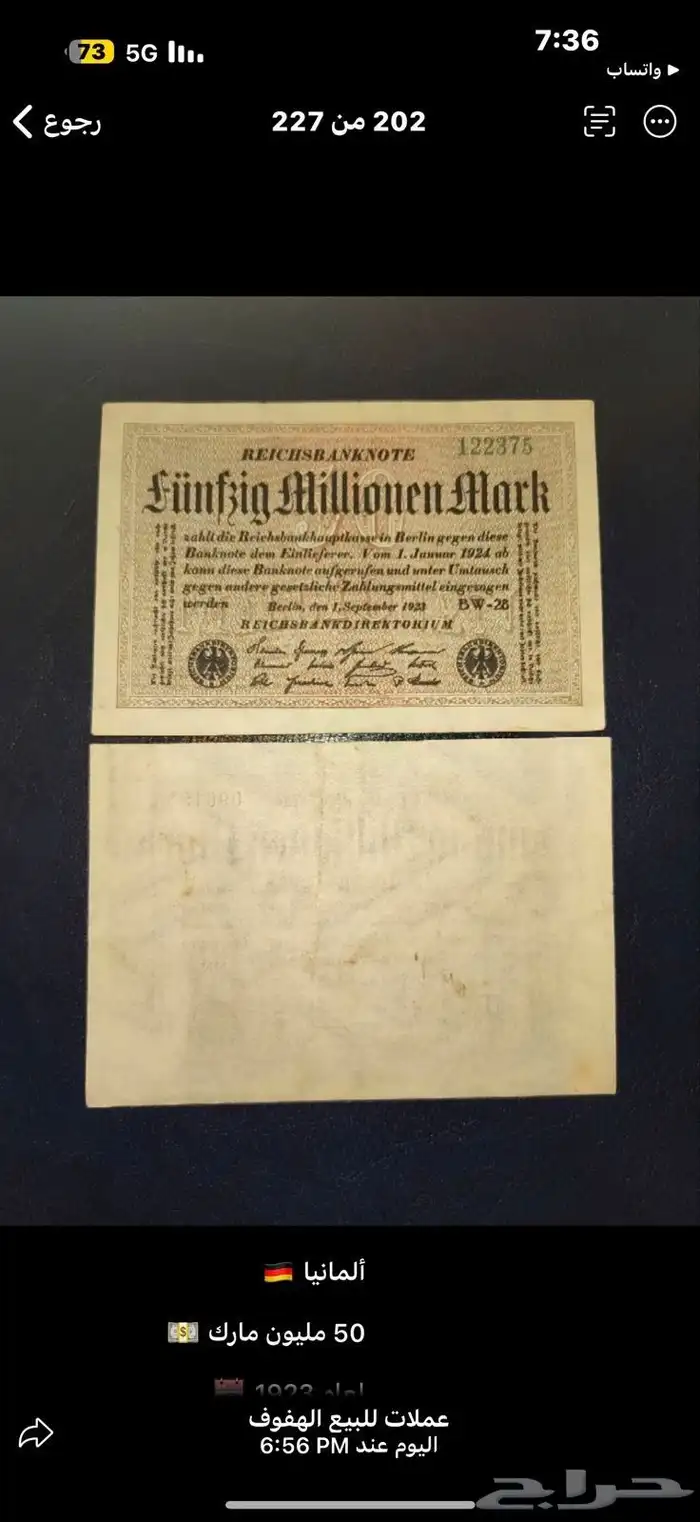 7:36
73 5G
واتساب
رجوع
202 من 227
REICHSBANKNOTE 122375
Fünfzig Millionen Mark
zahlt die Reichsbankhauptkasse in Berlin gegen diese
Banknote dem Einlieferer. Vom 1. Januar 1924 ab
kann diese Banknote aufgerufen und unter Umtausch
gegen andere gesetzliche Zahlungsmittel eingezogen
werden Berlin, den 1. September 1923 BW-28
REICHSBANKDIREKTORIUM
ألمانيا 🇩🇪
50 مليون مارك 💵
لعام 1923
عملات للبيع الهفوف
اليوم عند 6:56 PM
حراج